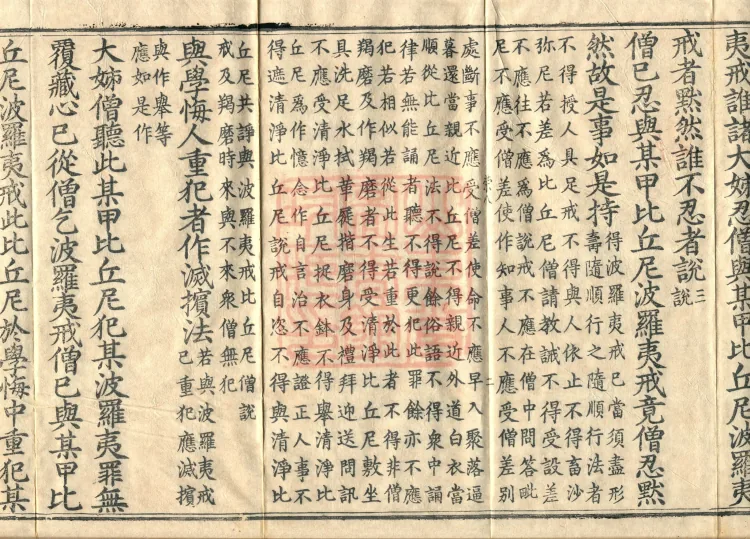 夷戒誰諸大姊忍僧與某甲比丘尼波羅夷
戒者默然誰不忍者說三說
僧已忍與某甲比丘尼波羅夷戒竟僧忍默
然故是事如是持得波羅夷戒已當須盡形
壽隨順行之隨順行法者
不得授人具足戒不得與人依止不得畜沙
彌尼若差為比丘尼僧請教誡不得受設差
不應往不應為僧說戒不應在僧中問答毗
尼不應受僧差使作知事人不應受僧差別
處斷事不應受僧差使命不應早入聚落逼
暮還當親近比丘尼不得親近外道白衣當
順從比丘尼法不得說餘俗語不得眾中誦
律若無能誦者聽不得更犯此罪餘亦不應
犯若相似若從此生若重於此者不得非僧
羯磨及作羯磨者不得受清淨比丘尼敷坐
具洗足水拭革屣揩磨身及禮拜迎送問訊
不應受清淨比丘尼捉衣鉢不得舉清淨比
丘尼為作憶念作自言治不應證正人事不
得遮清淨比丘尼說戒自恣不得與清淨比
丘尼共諍與波羅夷戒比丘尼僧說
戒及羯磨時來與不來眾僧無犯
與學悔人重犯者作滅擯法若與波羅夷戒
已重犯應滅擯
與作舉等
應如是作
大姊僧聽此某甲比丘尼犯某波羅夷罪無
覆藏心已從僧乞波羅夷戒僧已與某甲比
丘尼波羅夷戒此比丘尼於學悔中重犯某